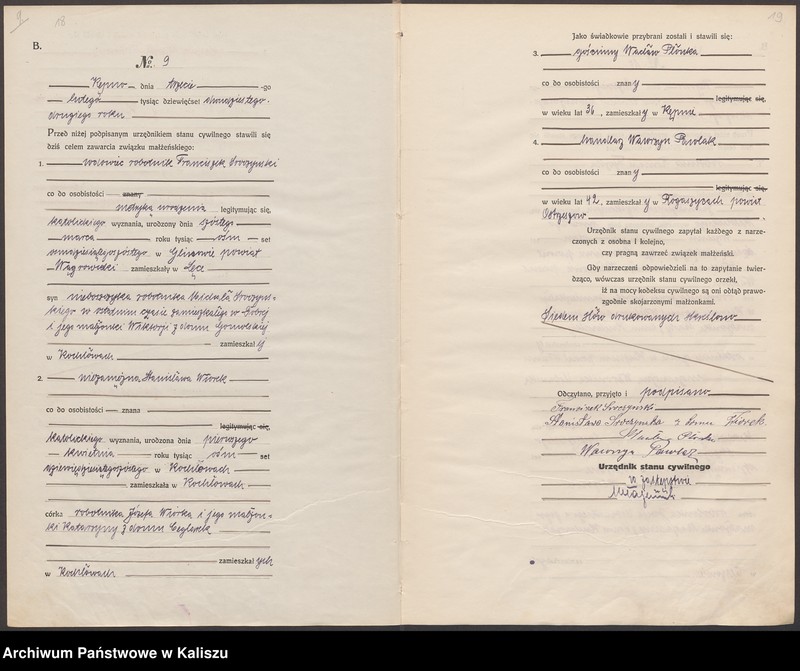 9
18
B.
№ 9
Kępno dnia trzeciego
lutego tysiąc dziewięćset dwudziestego
drugiego roku
Przed niżej podpisanym urzędnikiem stanu cywilnego stawili się
dziś celem zawarcia związku małżeńskiego:
1. wdowiec robotnik Franciszek Sroczyński
co do osobistości znany
metryką urodzenia legitymując się,
katolickiego wyznania, urodzony dnia szóstego
marca roku tysiąc ośm set
osmdziesiątegoszóstego w powiat
Wągrowiecki zamieszkały w
syn nieboszczyka robotnika Michała Sroczyńs-
kiego w ostatnim czasie zamieszkałego w
i jego małżonki Wiktorji z domu
zamieszkałej
w Kochłowach
2. niezamężna Stanisława Wiorek
co do osobistości znana
legitymując się,
katolickiego wyznania, urodzona dnia pierwszego
kwietnia roku tysiąc ośm set
dziewięćdziesiątegoszóstego w Kochłowach
zamieszkała w Kochłowach
córka robotnika Józefa Wiorka i jego małżon-
ki Katarzyny z domu Ceglarek
zamieszkałych
w Kochłowach
19
Jako świadkowie przybrani zostali i stawili się:
3. gościnny Wacław Płonka
co do osobistości znany
legitymując się,
w wieku lat 36, zamieszkały w Kępnie
4. handlarz Wawrzyn Pawlak
co do osobistości znany
legitymując się,
w wieku lat 42, zamieszkały w Rogaszycach powiat
Ostrzeszów
Urzędnik stanu cywilnego zapytał każdego z narze-
czonych z osobna i kolejno,
czy pragną zawrzeć związek małżeński.
Gdy narzeczeni odpowiedzieli na to zapytanie twier-
dząco, wówczas urzędnik stanu cywilnego orzekł,
iż na mocy kodeksu cywilnego są oni odtąd prawo-
zgodnie skojarzonymi małżonkami.
Siedem słów drukowanych skreślono
Odczytano, przyjęto i podpisano
Franciszek Sroczyński
Stanisława Sroczyńska z domu Wiorek.
Wawrzyn Pawlak
Urzędnik stanu cywilnego
w zastępstwie
Archiwum Państwowe w Kaliszu